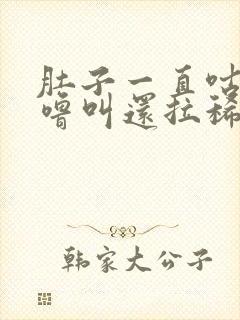 肚子一直咕
噜叫還拉稀
韩家大公子